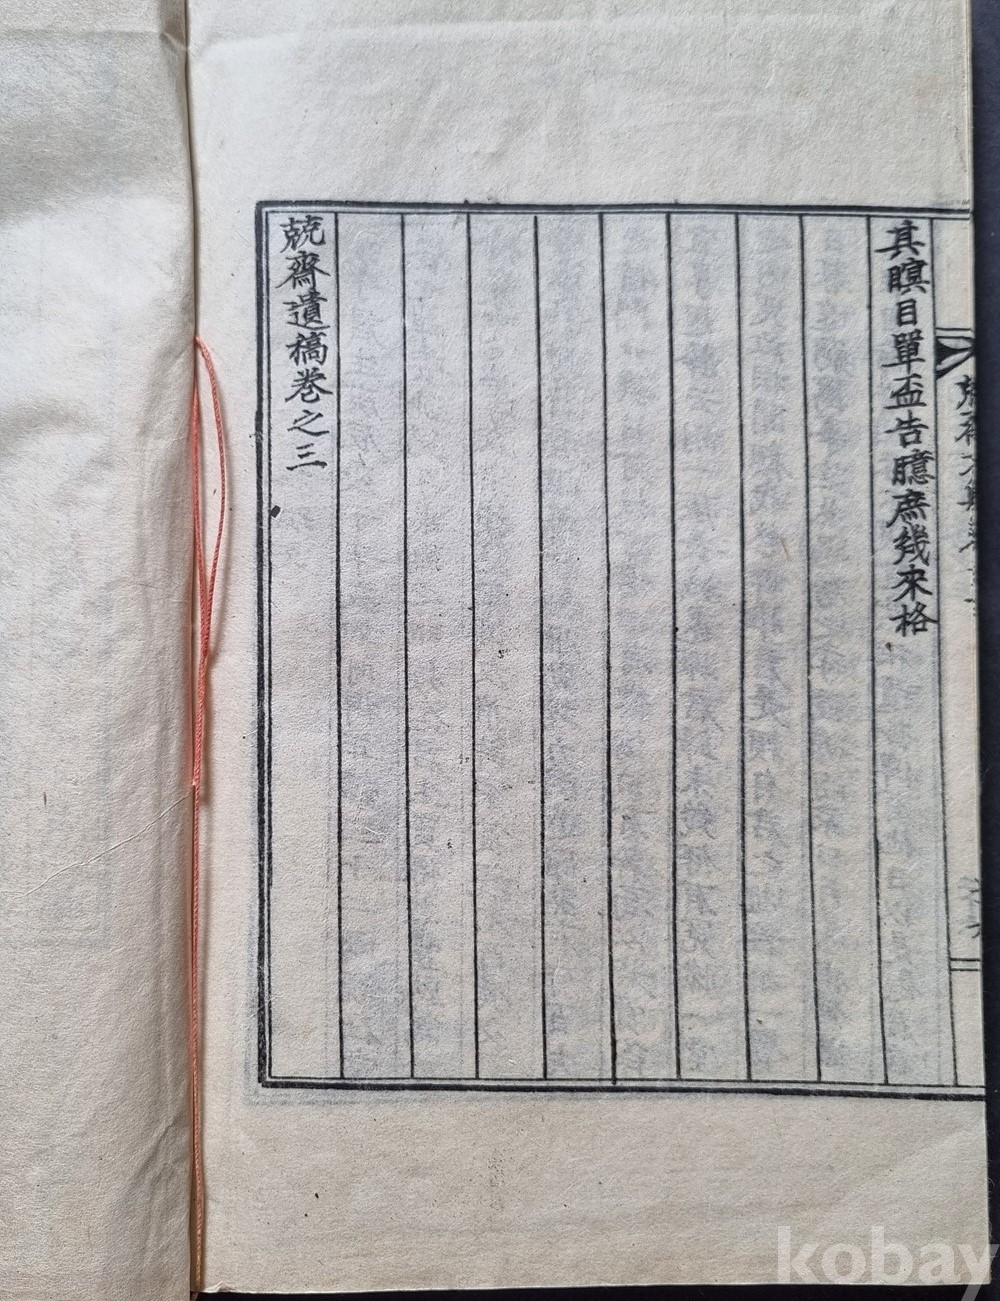 其瞑目單盃告臆庶幾來格
兢齋遺稿卷之三
kobay